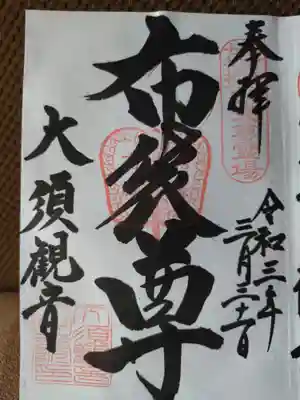 奉拝
令和三年
三月
日
布袋尊
大須観音
霊場